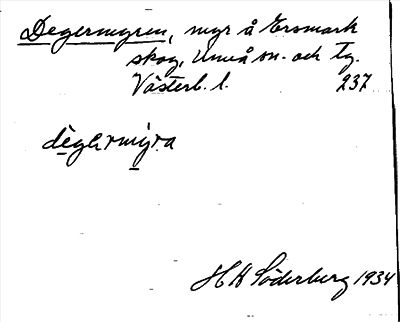 Degermyren, myr å Ersmark
skog, Umeå sn. och tg.
Västerb. l. 237
degermyra
H H Söderberg 1934